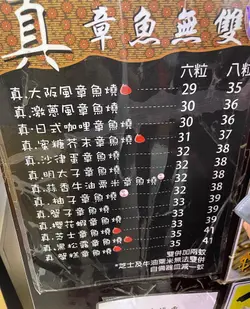 真 章魚無雙
六粒 八粒
真.大阪風章魚燒 29 35
真.激蔥風章魚燒 30 36
真.日式咖哩章魚燒 30 36
真.蜜糖芥末章魚燒 31 37
真.沙津蛋章魚燒 32 38
真.明太子章魚燒 32 38
真.蒜香牛油粟米章魚燒 32 38
真.柚子章魚燒 33 39
真.蟹子章魚燒 33 39
真.櫻花蝦章魚燒 33 39
真.芝士章魚燒 35 41
真.黑松露章魚燒 35 41
真.蟹糕章魚燒
雙併加兩蚊
*芝士及牛油粟米無法雙併
自備器皿減一蚊